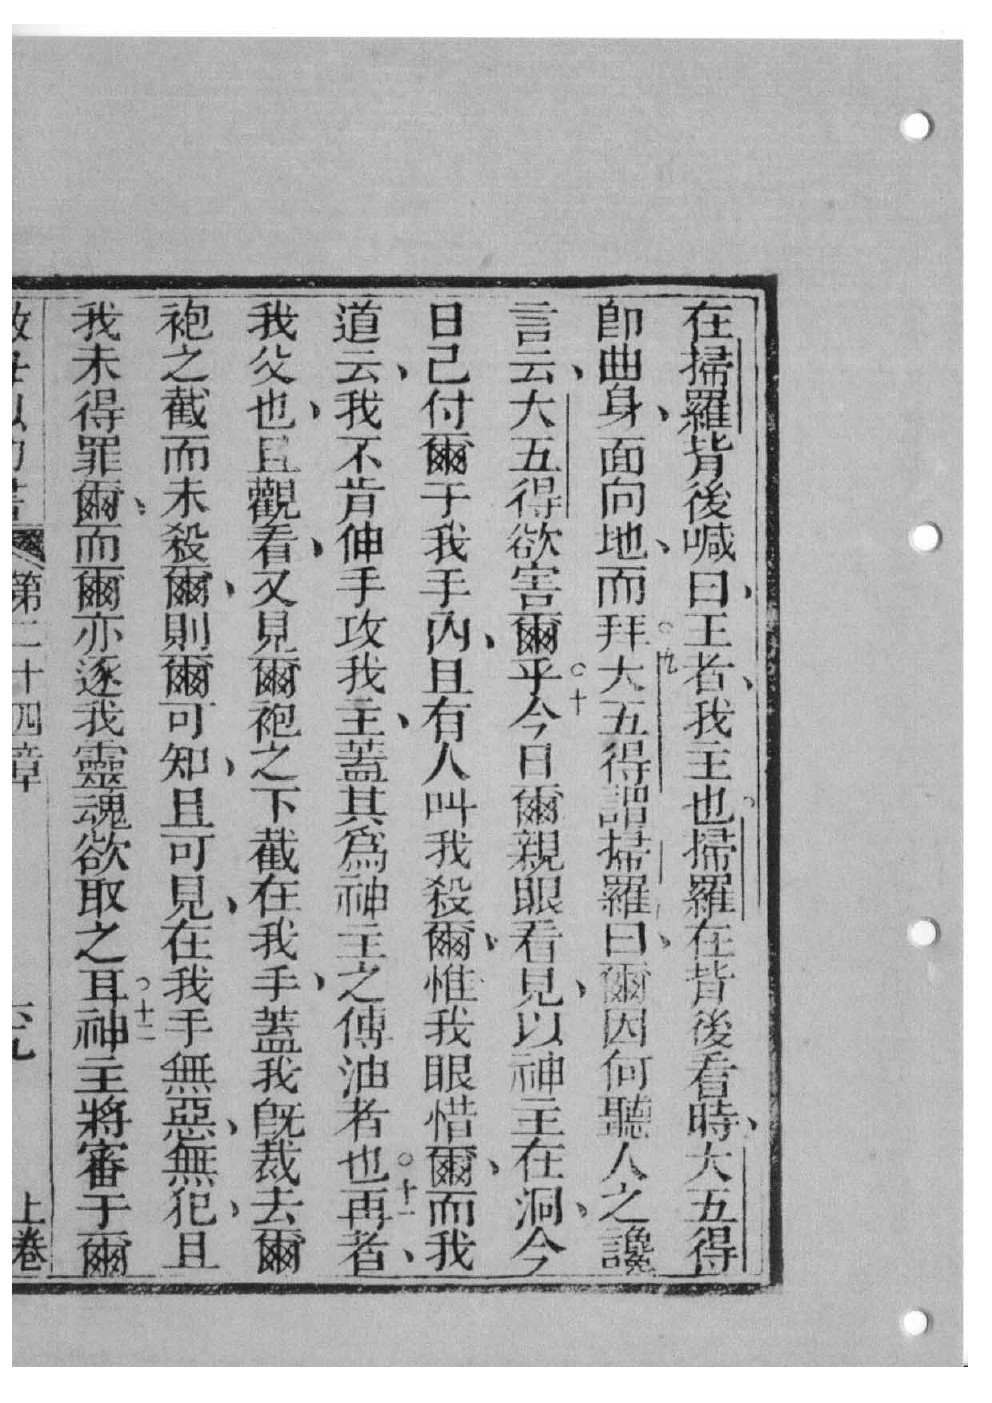 在掃羅背後喊曰、王者、我主也。掃羅在背後看時、大五得
卽曲身、面向地、而拜。九大五得謂掃羅曰、爾因何聽人之讒
言云、大五得欲害爾乎。十今日爾親眼看見、以神主在洞、今
日己付爾于我手內、且有人叫我殺爾、惟我眼惜爾、而我
道云、我不肯伸手攻我主、蓋其為神主之傅油者也。十一再者、
我父也、且觀看、又見爾袍之下截在我手、蓋我旣裁去爾
袍之截而未殺爾、則爾可知、且可見、在我手無惡、無犯、且
我未得罪爾、而爾亦逐我靈魂欲取之耳。十二神主將審于爾
第二十四章 上卷